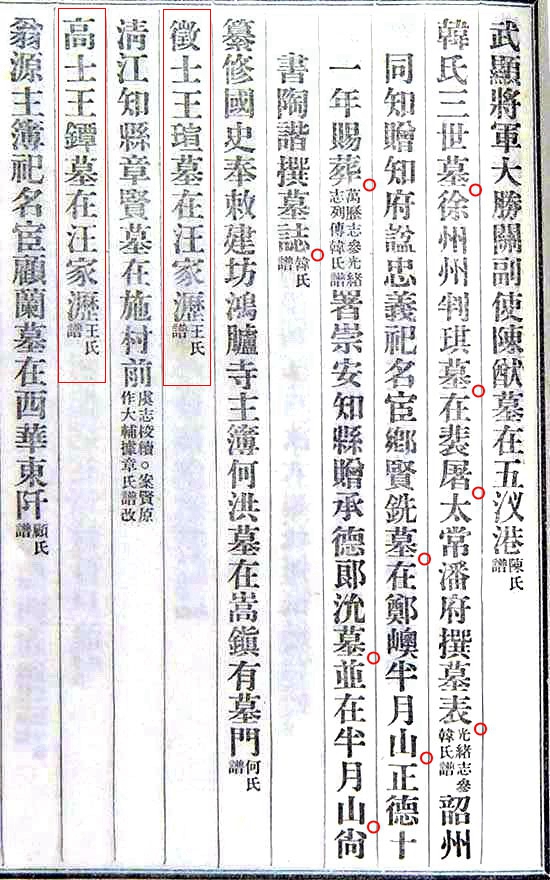 武顯將軍大勝關副使陳猷墓在五汊港陳氏譜
韓氏三世墓徐州州判琪墓在裴屠太常潘府撰墓表光緒志參韓氏譜韶州
同知贈知府諡忠義祀名宦鄉賢銑墓在鄭嶴半月山正德十
一年賜葬萬歷志參光緒志列傳韓氏譜署崇安知縣贈承德郎沇墓並在半月山尙
書陶諧撰墓誌韓氏譜
纂修國史奉敕建坊鴻臚寺主簿何洪墓在嵩鎭有墓門何氏譜
徵士王瑄墓在汪家瀝王氏譜
淸江知縣章賢墓在施村前虞志校續○案賢原作大輔據章氏譜改
高士王鐔墓在汪家瀝王氏譜
翁源主簿祀名宦顧蘭墓在西華東阡顧氏譜